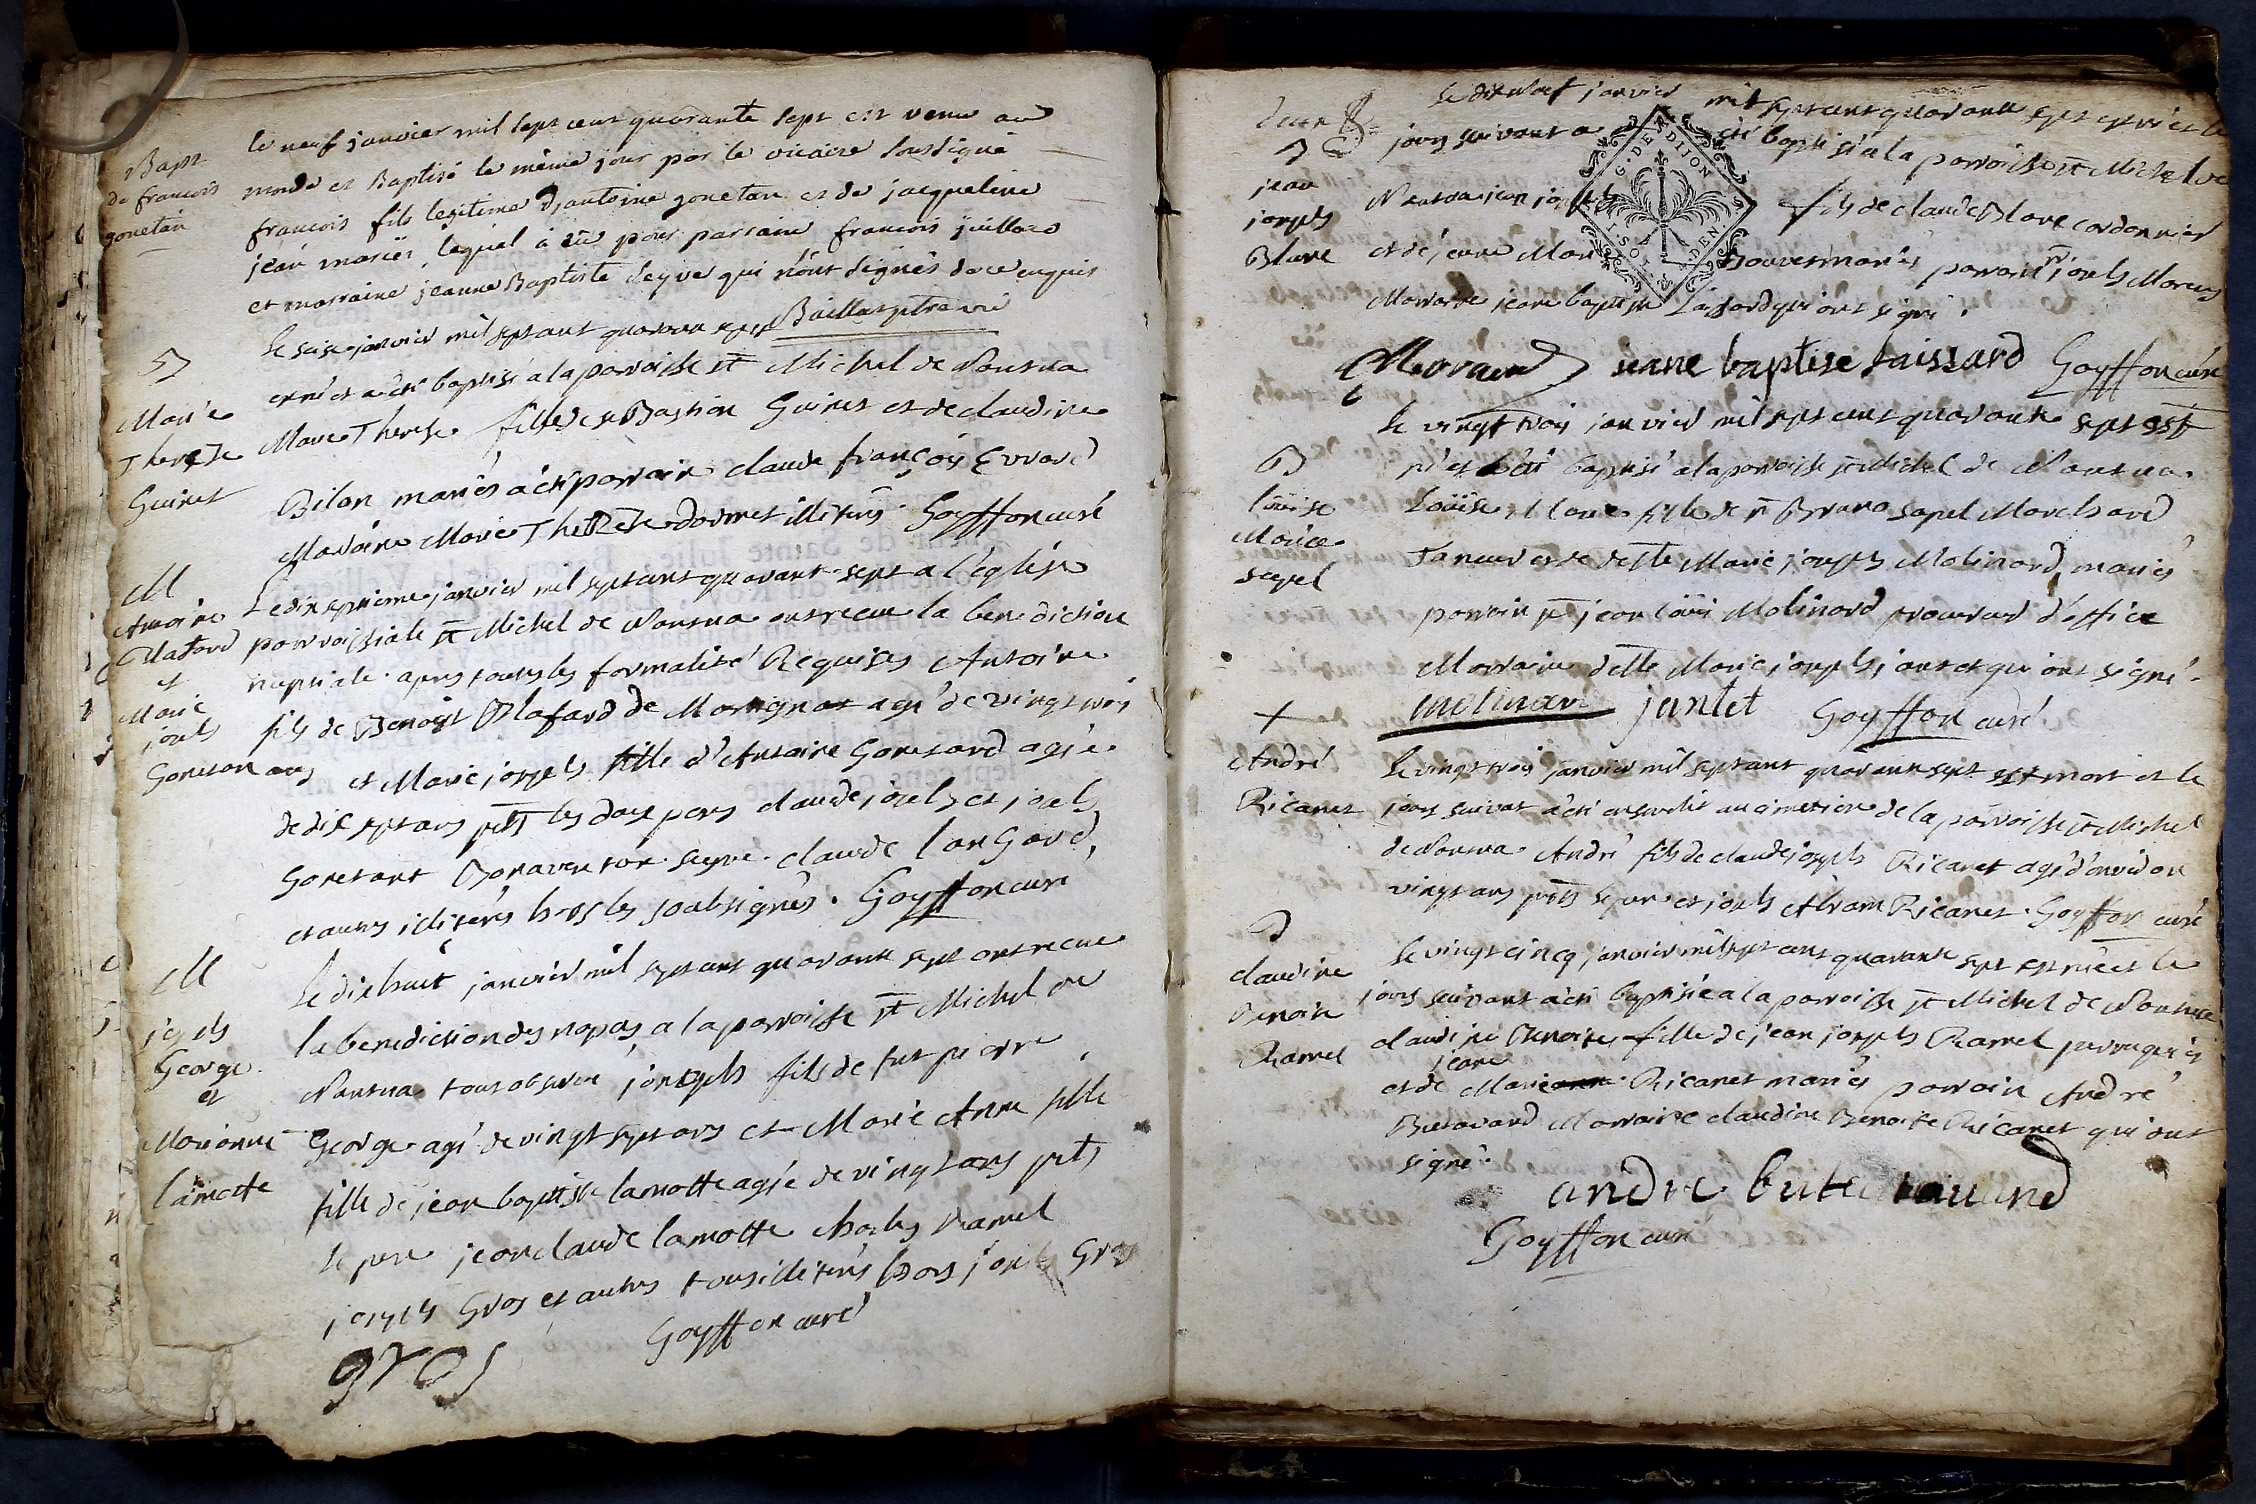 Bapt
de francois
gonetan
le neuf janvier mil sept cent quarante sept est venu au
monde et Baptisé le même jour par le vicaire soussigné
francois fils legitime d'antoine gonetan et de jacqueline
jean mariés, lequel à eu pour parrain francois juillard
et marraine jeanne Baptiste seyve qui n'ont signés de ce enquis
Baillat ptre vic
B
Marie
Therese
Guinet
le seise janvier mil sept cent quarante sept
est né et a été baptisé a la parroisse st Michel de Nantua
Marie Therese fille de Bastian Guinet et de claudine
Bilon mariés a été parrain claude françois Evrard
Maraine Marie Therese dormet illiterés. Goyffon curé
M
Antoine
Blafard
et
Marie
joseph
Gonetan
Le dix septieme janvier mil sept cent quarante sept a l'église
parroissiale st Michel de Nantua ont recue la benediction
nuptiale apres toutes les formalité Requises Antoine
fils de Benoist Blafard de Martignat agé de vingt trois
ans et Marie joseph fille d'Antoine Gonetand agée
de dix sept ans pnts les deux peres claude joseph et joseph
Gonetant Bonaventure seyve claude Longard,
et autres illiterés hors les soubsignés. Goyffon curé
M
joseph
George
et
Marianne
lamotte
Le dix huit janvier mil sept cent quarante sept ont recue
la benediction des nopces a la parroisse st Michel de
Nantua tout observé joseph fils de fut pierre
George agé de vingt sept ans et Marie Anne fille
fille de jean baptiste lamotte agée de vingt ans pnts
le pere jean claude lamotte charles Ramel
joseph Gros et autres tous illiterés hors joseph Gros
Goyffon curé
gros
B
jean
joseph
Blanc
Le dix neuf janvier mil sept cent quarante sept est né et le
jour suivant a été baptisé a la parroisse st Michel de
Nantua jean joseph fils de claude Blanc cordonnier
et de jeanne Mar Bouvet mariés parrain sr joseph Moraud
Marraine jeane baptiste Laissard qui ont signé.
G. DE DIJON
Moraud jeane baptiste laissard Goyffon curé
B
loüise
Marie
sapel
Le vingt trois janvier mil sept cent quarante sept est
né et a été baptisé a la parroisse st Michel de Nantua
Loüise Marie fille de sr Bruno sapel Marchand
Taneur et de delle Marie joseph Molinard mariés
parrain sr jean loüis Molinard procureur d'office
Marraine delle Marie joseph jantet qui ont signé.
molinard jantet Goyffon curé
+
André
Ricanet
Le vingt trois janvier mil sept cent quarante sept est mort et le
jour suivant a été ensevelit au cimetiere de la parroisse st Michel
de Nantua André fils de claude joseph Ricanet agé d'environ
vingt ans pnts le pere et joseph Abram Ricanet. Goyffon curé
B
claudine
Benoite
Ramel
Le vingt cinq janvier mil sept cent quarante sept est née et le
jour suivant a été baptisée a la parroisse st Michel de Nantua
claudine Benoite fille de jean joseph Ramel perruquier
jeane
et de Marie Ricanet mariés parrain André
Butavand Marraine claudine Benoite Ricanet qui ont
signé.
andre butavaund
Goyffon curé